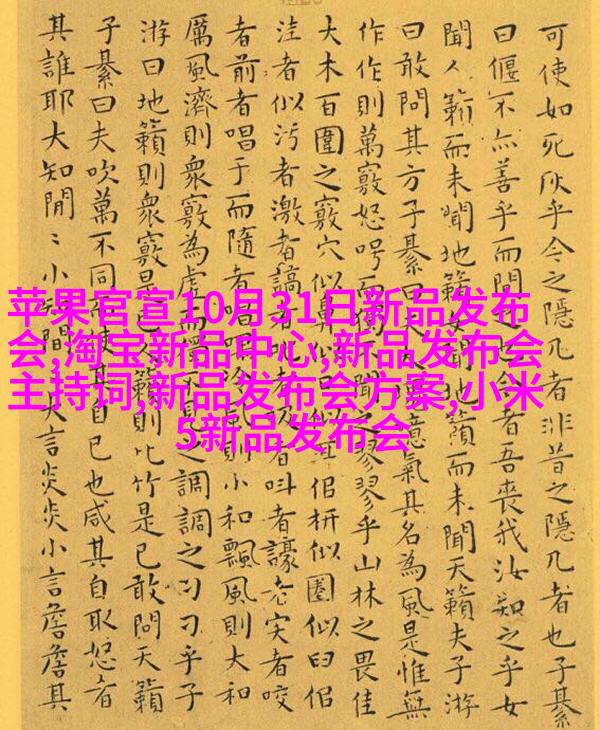 可使如死灰乎今之隱几者非昔之隱几者也子綦
曰偃不亦善乎而問之者吾喪我汝知之乎女
聞人籟而未聞地籟女聞地籟而未聞天籟夫子游
曰敢問其方子綦曰噫氣其名為風是惟無
作作則萬竅怒呺而聞之翏翏乎山林之畏佳
大木百圍之竅穴似鼻佀枅似圈似臼佀
洼者似污者激者謞者叫者譹者宎者咬
者前者唱于而隨者唱則小和飄風則大和
厲風濟則衆竅為虛而之調調之刁刁乎子
游曰地籟則衆竅是則比竹是已敢問天籟
子綦曰夫吹萬不同而使其自己也咸其自取怒者
其誰耶大知閒〻小閒大言炎炎小言詹詹其
苹果官宣10月31日新品发布
会,淘宝新品中心,新品发布会
主持词,新品发布会方案,小米
5新品发布会